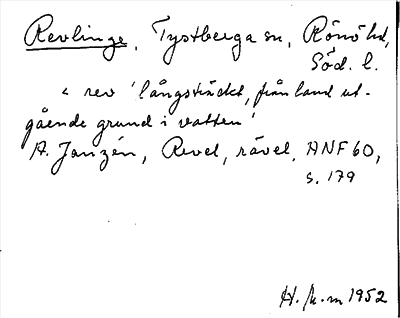 Revlinge, Tystberga sn, Rönö hd,
Söd. l.
< rev 'långsträckt, från land ut-
gående grund i vatten'
A. Janzén, Revel, rävel, ANF 60,
s. 179
H. 1952